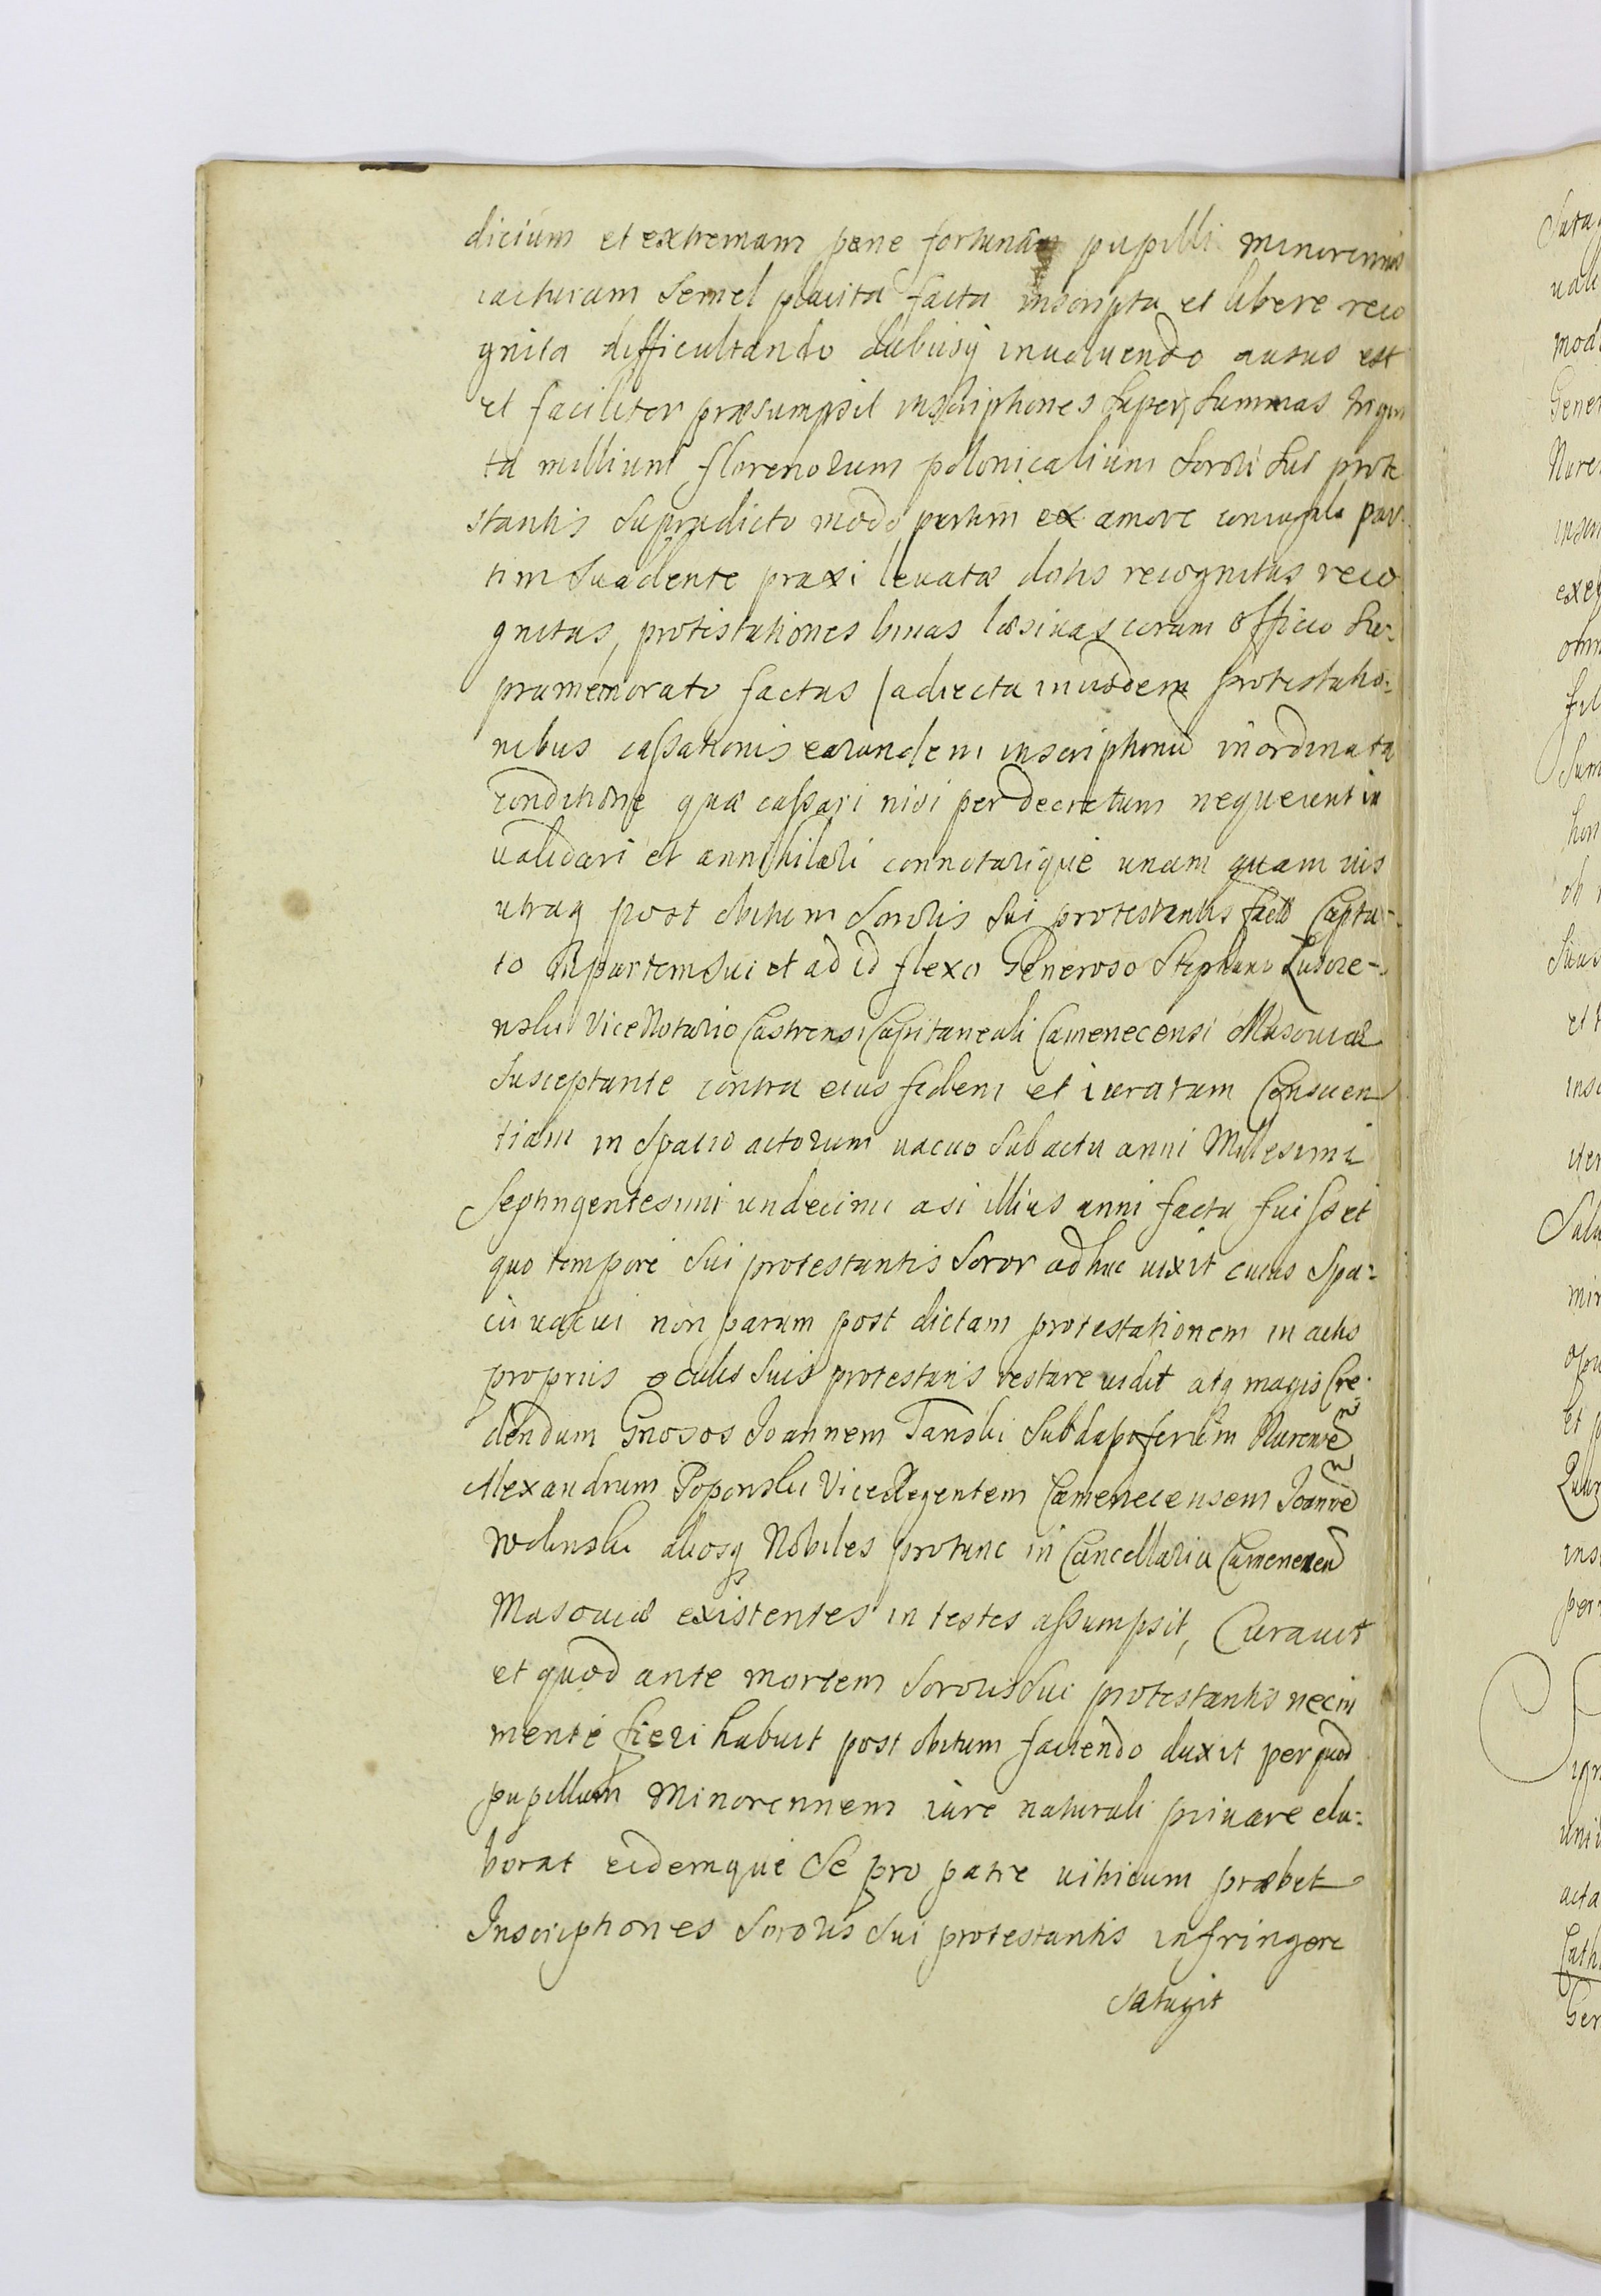 dicium et extremam pene fortunam pupilli minorennis
iacturam semel placita facta inscripta et libere reco
gnita difficultando dubiisq inuoluendo ausus est
et faciliter præsumpsit inscriptiones super summas trigin
ta millium florenorum polonicalium sorori sui prote
stantis supradicto modo partim ex amore coniugali par
tim suadente praxi leuatæ dotis recognitas reco
gnitas, protestationes binas læsiuas coram officio su-
pramemorato factas (adiecta in iisdem protestatio-
nibus cassationis earundem inscriptionū inordinata
conditione quæ cassari nisi per decretum nequeunt in
ualidari et annihilari connotarique unam quam uis
utraq post obitum sororis sui protestantis facto Capta-
to in partem sui et ad id flexo Generoso Stephano
Vice Notario Castrensi Capitaneali Camenecensi Masouiæ
susceptante contra eius fidem et iuratam Conscien
tiam in spatio actorum uacuo sub actu anni Millesimi
Septingentesimi undecimi asi illius anni facta fuisset
quo tempore sui protestantis soror adhuc uixit cuius spa-
cii uacui non parum post dictam protestationem in actis
propriis oculis suis protestans restare uidit atq magis Cre-
dendum Gnosos Joannem Tanski Subdapiferum Nurensē
Alexandrum Poponski ViceRegentem Camenecensem Joannē
Wolinski aliosq Nobiles protunc in Cancellaria Camenecen
Masouiæ existentes in testes assumpsit, Curauit
et quod ante mortem sororis sui protestantis nec in
mente fieri habuit post obitum faciendo duxit per quod
pupillum Minorennem iure naturali priuare ela-
borat eidemque se pro patre uitricum præbet
Inscriptiones sororis sui protestantis infringere
satagit